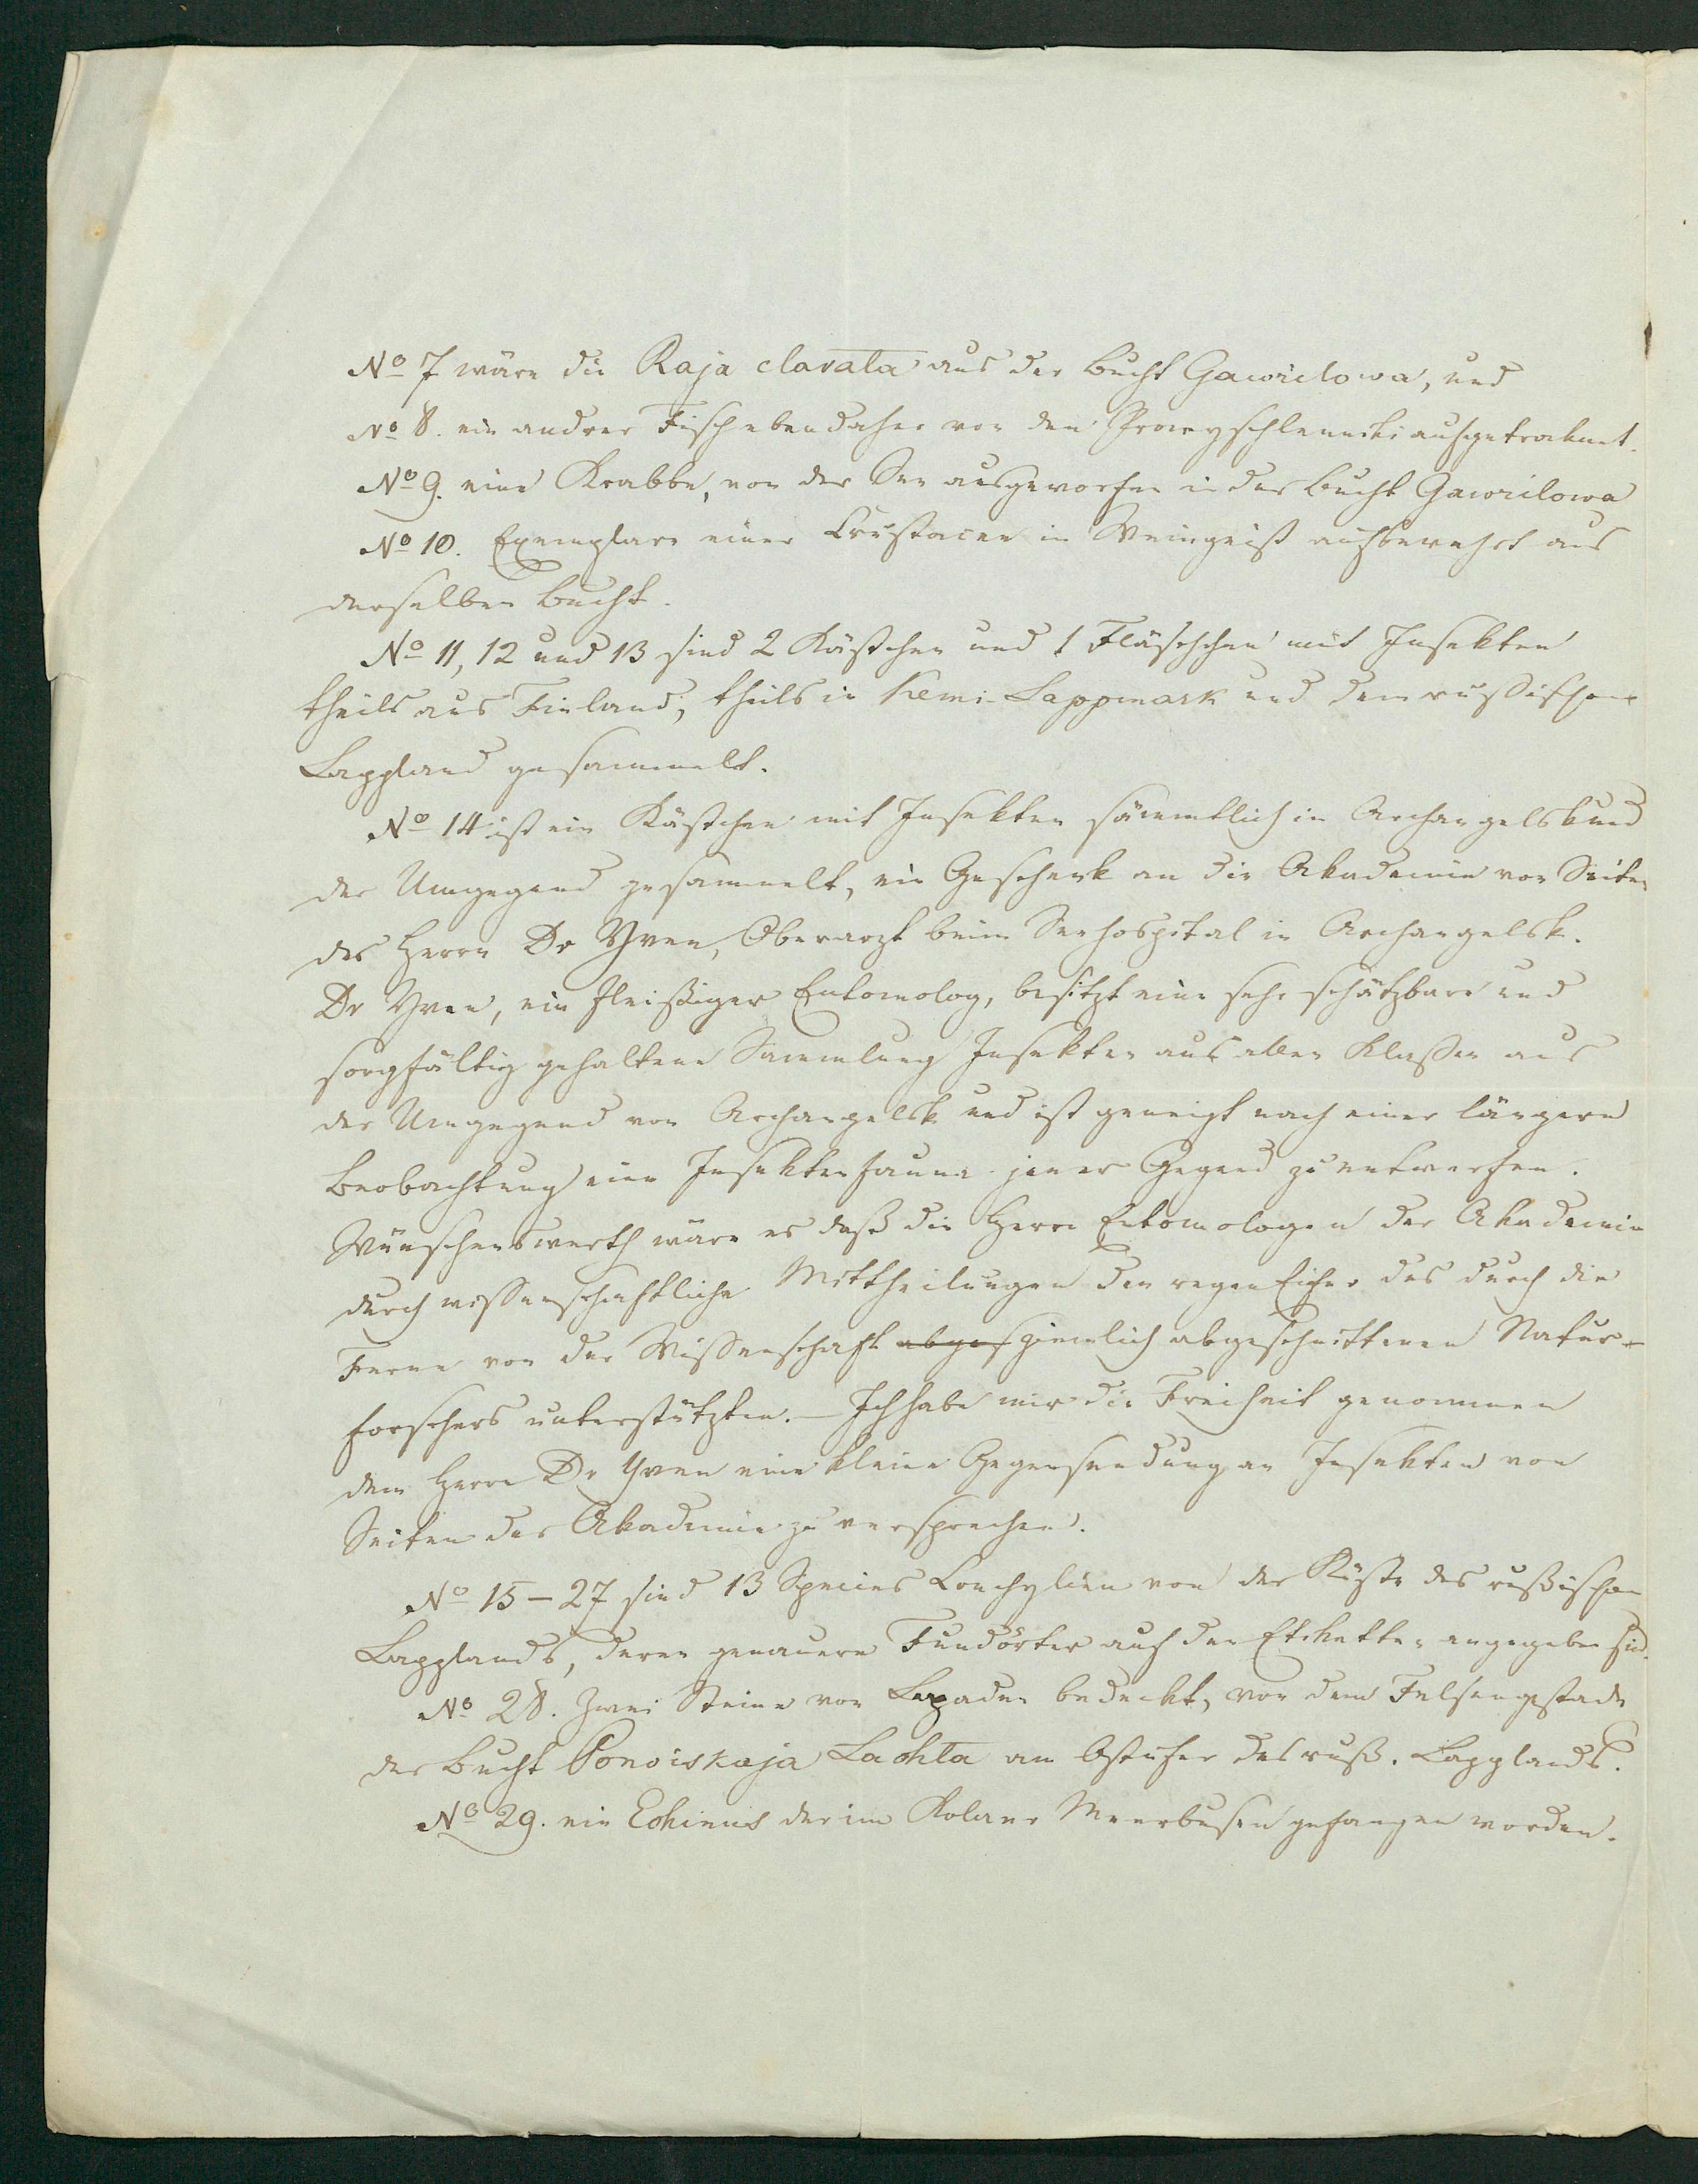 No 7 wäre die Raja clavata aus der Bucht Gawrilowa, und
No 8. ein andrer Fisch ebendaher von den Promyschlenniki aufgetrocknet.
No 9. eine Krabbe, von der See ausgeworfen in der Bucht Gawrilowa
No 10. Exemplare einer Crustacee in Weingeist aufbewahrt aus
derselben Bucht.
No 11, 12 und 13 sind 2 Kästchen und 1 Fläschchen mit Insekten
theils aus Finland, theils in Kemi-Lappmark und dem rußischen
Lappland gesammelt.
No 14 ist ein Kästchen mit Insekten sämmtlich in Archangelsk und
der Umgegend gesammelt, ein Geschenk an die Akademie von Seiten
des Herrn Dr Yven, Oberarzt beim Seehospital in Archangelsk.
Dr Yven, ein fleißiger Entomolog, besitzt eine sehr schätzbare und
sorgfältig gehaltene Sammlung Insekten aus allen Klaßen aus
der Umgegend von Archangelsk und ist geneigt nach einer längern
Beobachtung eine Insektenfauna jener Gegend zu entwerfen.
Wünschenswerth wäre es daß die Herrn Entomologen der Akademie
durch wissenschaftliche Mittheilungen den regen Eifer des durch die
Ferne von der Wissenschaft abges ziemlich abgeschnittenen Natur-
forschers unterstützten. – Ich habe mir die Freiheit genommen
dem Herrn Dr Yven eine kleine Gegensendung an Insekten von
Seiten der Akademie zu versprechen.
No 15–27 sind 13 Species Conchylien von der Küste des rußischen
Lapplands, deren genauere Fundörter auf den Etiketten angegeben sind.
No 28. Zwei Steine von Lepaden bedeckt, von dem Felsengestade
der Bucht Ponoiskaja Lachta am Ostufer des ruß. Lapplands.
No 29. ein Echinus der im Kolaer Meerbusen gefangen worden.